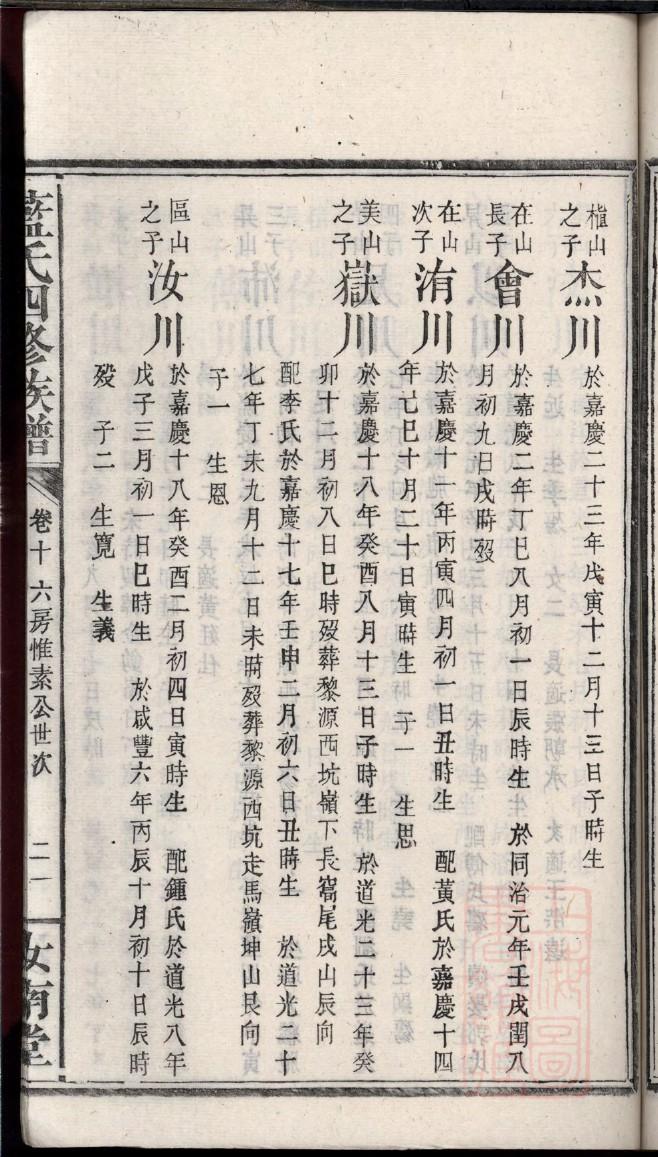 楂山之子 杰川 於嘉慶二十三年戊寅十二月十三日子時生
在山長子 會川 於嘉慶二年丁巳八月初一日辰時生 於同治元年壬戌閏八
月初九日戌時歿
在山次子 洧川 於嘉慶十一年丙寅四月初一日丑時生 配黃氏於嘉慶十四
年己巳十月二十日寅時生 子一 生思
美山之子 嶽川 於嘉慶十八年癸酉八月十三日子時生 於道光二十三年癸
卯十二月初八日巳時歿葬黎源西坑嶺下長窩尾戌山辰向
配李氏於嘉慶十七年壬申二月初六日丑時生 於道光二十
七年丁未九月十二日未時歿葬黎源西坑走馬嶺坤山艮向
子一 生恩
區山之子 汝川 於嘉慶十八年癸酉二月初四日寅時生 配鍾氏於道光八年
戊子三月初一日巳時生 於咸豐六年丙辰十月初十日辰時
歿 子二 生寬 生義
藍氏四修族譜 卷十 六房惟素公世次 二一 汝南堂